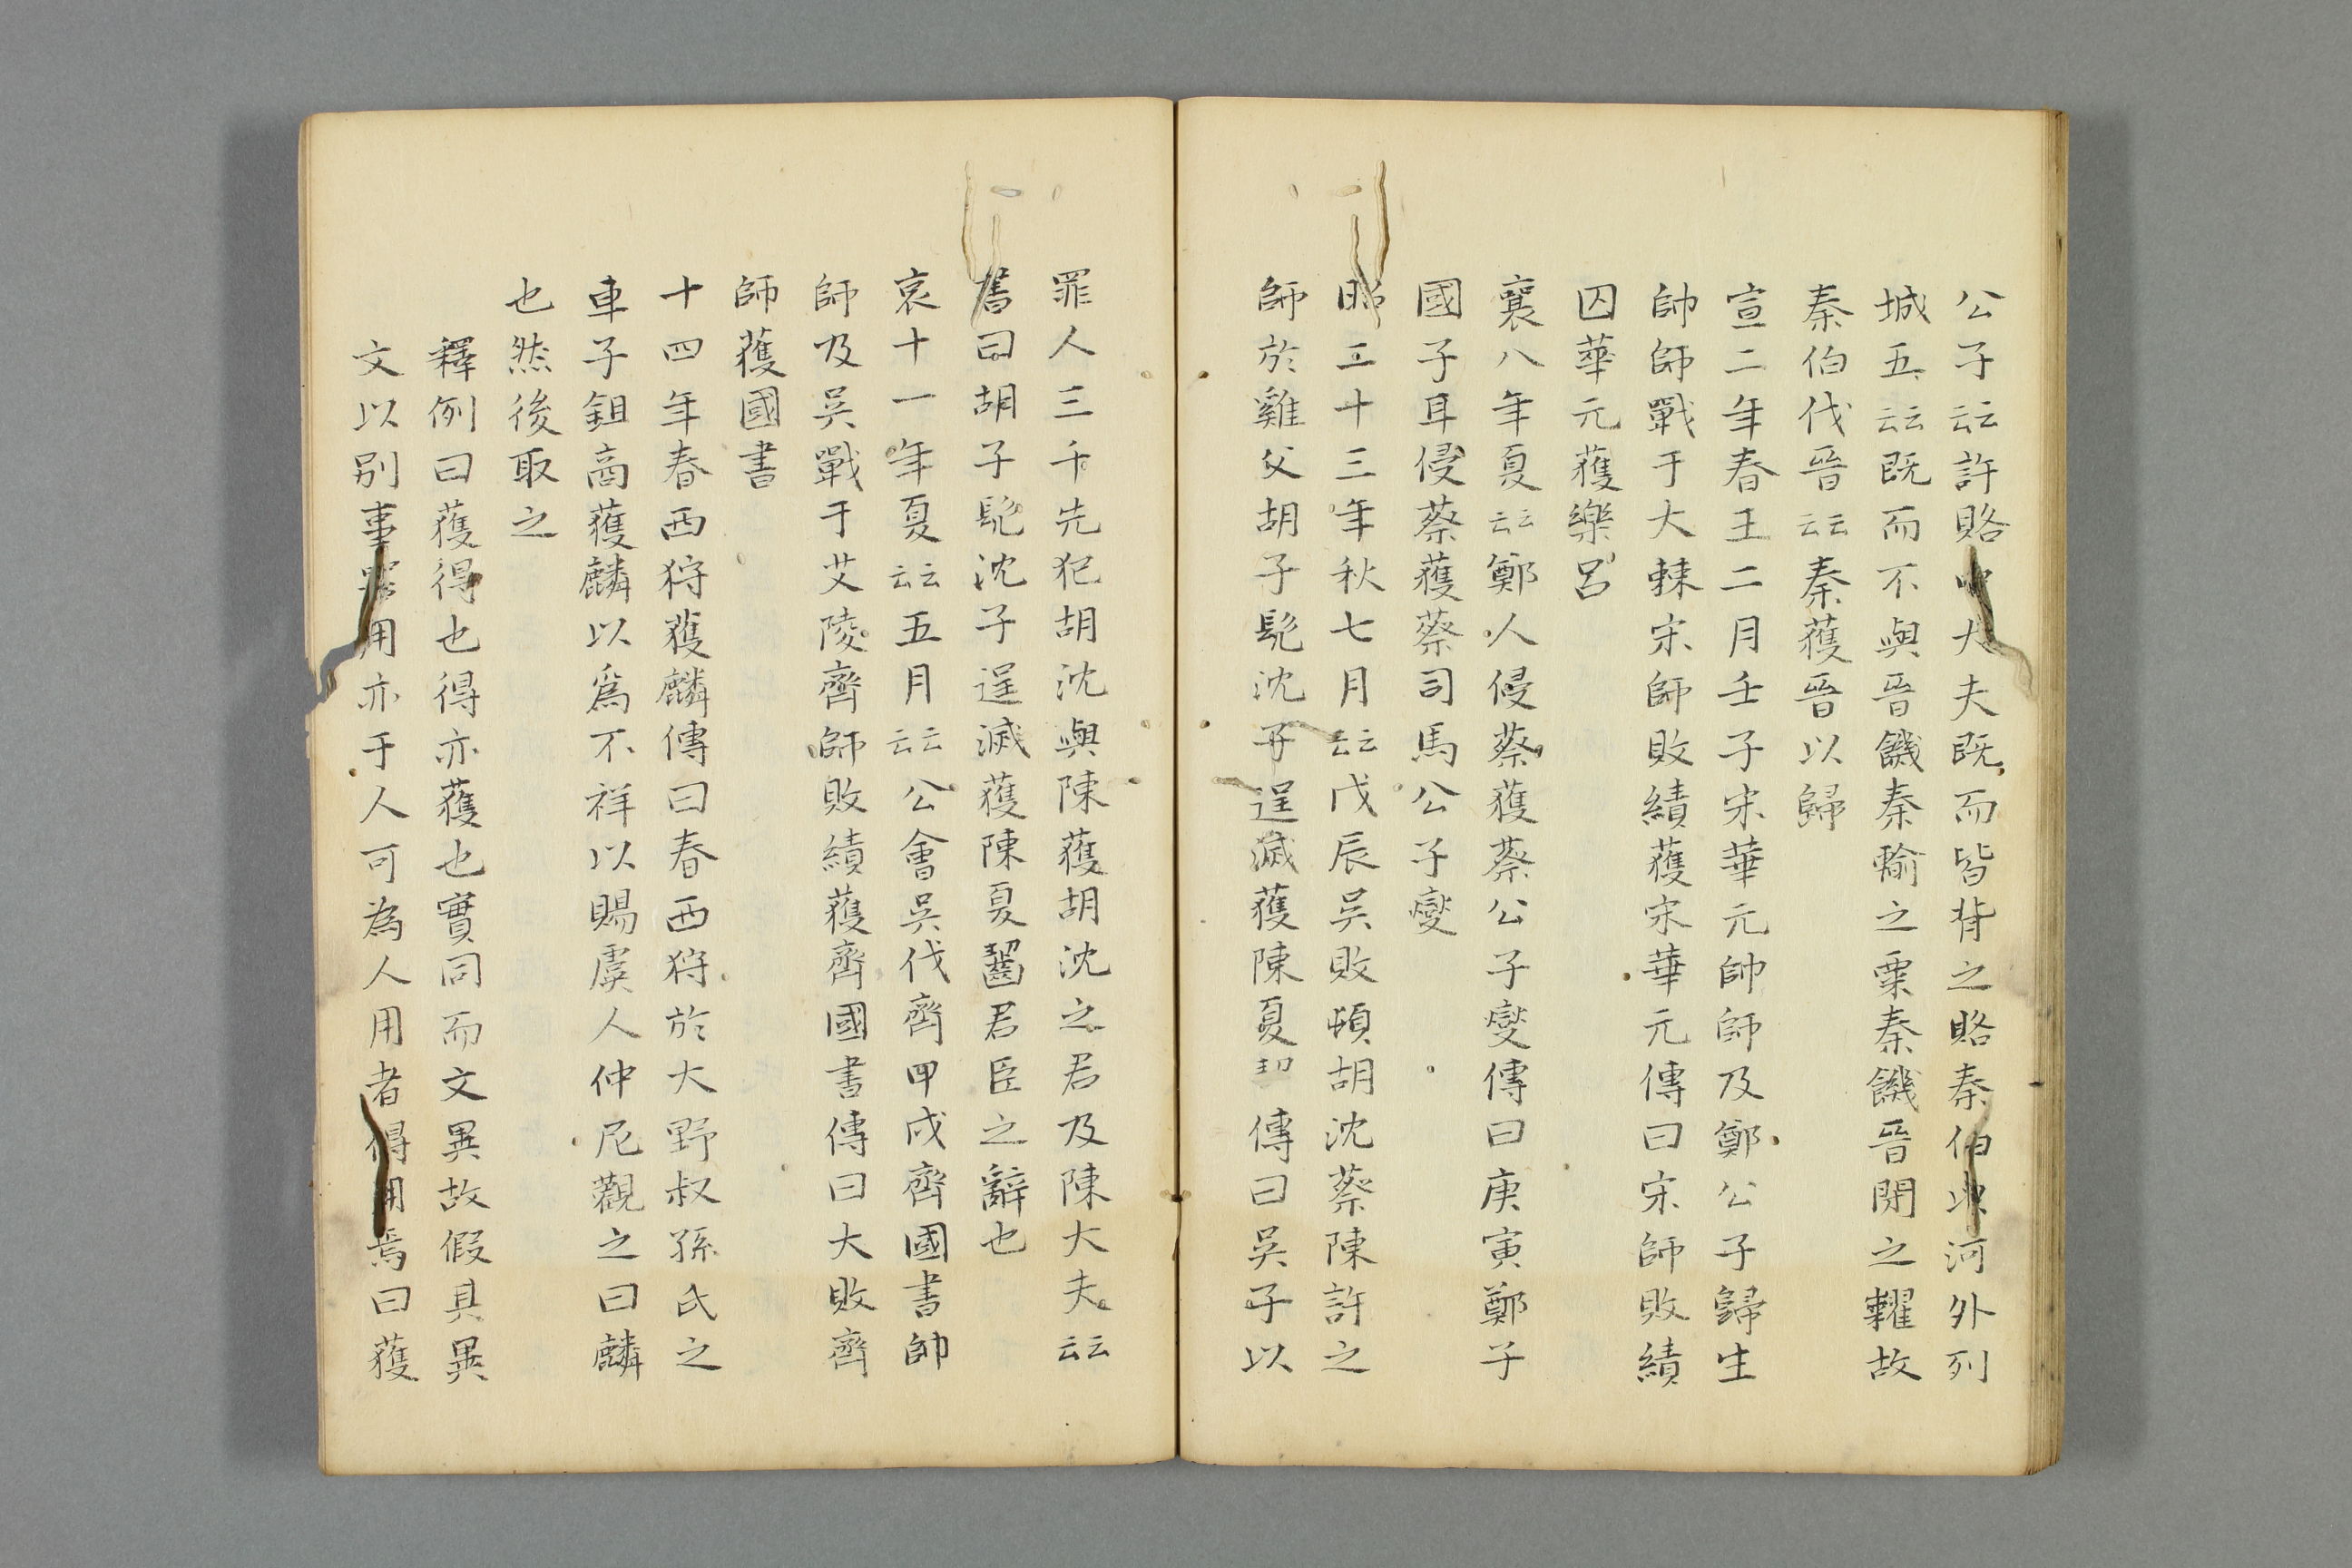 公子云云許賂中大夫既而皆背之賂秦伯以河外列
城五云云既而不與晉饑秦輸之粟秦饑晉閉之糶故
秦伯伐晉云云秦獲晉以歸
宣二年春王二月壬子宋華元帥師及鄭公子歸生
帥師戰于大棘宋師敗績獲宋華元傳曰宋師敗績
囚華元獲樂呂
襄八年夏云云鄭人侵蔡獲蔡公子燮傳曰庚寅鄭子
國子耳侵蔡獲蔡司馬公子燮
昭二十三年秋七月云云戊辰吳敗頓胡沈蔡陳許之
師於雞父胡子髡沈子逞滅獲陳夏齧傳曰吳子以
罪人三千先犯胡沈與陳獲胡沈之君及陳大夫云云
書曰胡子髡沈子逞滅獲陳夏齧君臣之辭也
哀十一年夏云云五月云云公會吳伐齊甲戌齊國書帥
師及吳戰于艾陵齊師敗績獲齊國書傳曰大敗齊
師獲國書
十四年春西狩獲麟傳曰春西狩於大野叔孫氏之
車子鉏商獲麟以爲不祥以賜虞人仲尼觀之曰麟
也然後取之
釋例曰獲得也得亦獲也實同而文異故假其異
文以別事器用亦于人可為人用者得用焉曰獲